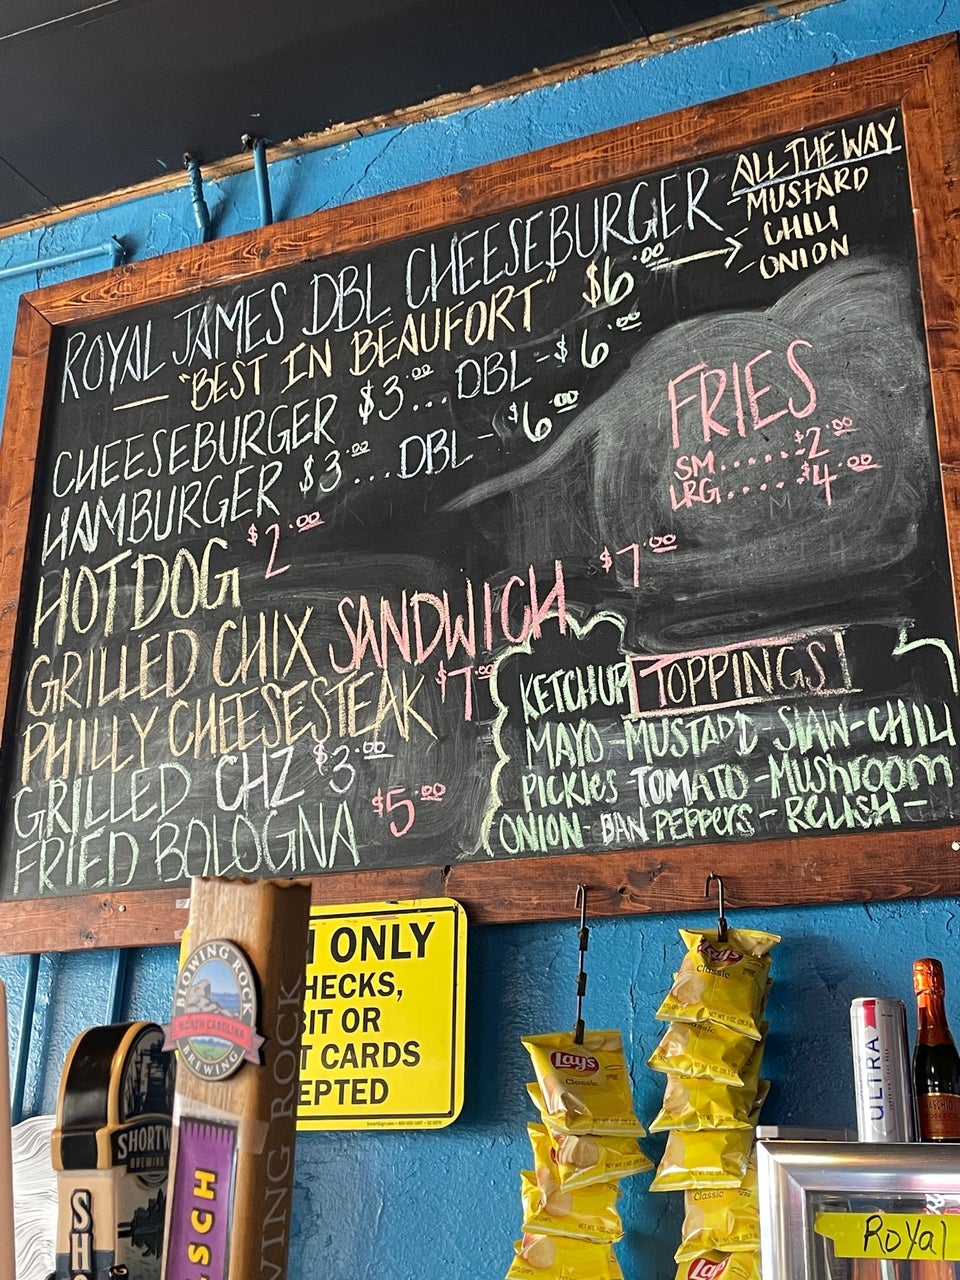 ALL THE WAY
-MUSTARD
- CHILI
-ONION
ROYAL JAMES DBL CHEESEBURGER
"BEST IN BEAUFORT" $6.00
CHEESEBURGER $3.00...DBL-$6.00
HAMBURGER $3.00...DBL - $6.00
HOTDOG $2.00
GRILLED CHIX SANDWICH $7.00
PHILLY CHEESESTEAK $7.00
GRILLED CHZ $3.00
FRIED BOLOGNA $5.00
FRIES
SM......$2.00
LRG.....$4.00
TOPPINGS
KETCHUP
MAYO-MUSTARD-SLAW-CHILI
PICKles TOMATO-MUshroom
ONION- BAN PEPPeRS - RELISH-
ONLY
HECKS,
IT OR
T CARDS
EPTED
BLOWING ROCK
NORTH CAROLINA
BREWING
SHORTW
BREWING
SHO
SCH
VING ROCK
Lay's
Classic
Lay's
Classic
Classic
Classic
Lay's
ULTRA
Royal